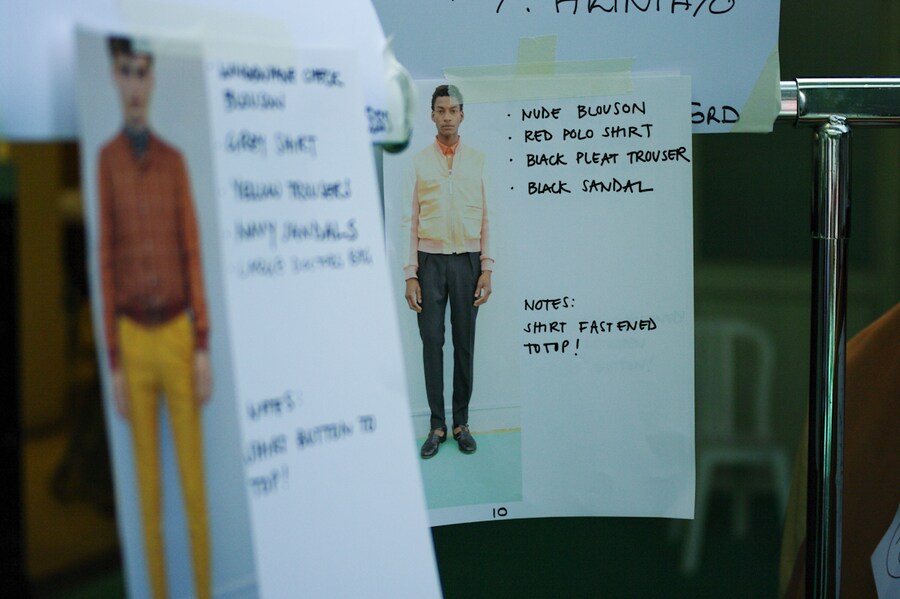 BLOUSON
GREY SHIRT
YELLOW TROUSERS
NAVY SANDALS
NOTES:
SHIRT BUTTON TO
TOP!
GRD
· NUDE BLOUSON
· RED POLO SHIRT
· BLACK PLEAT TROUSER
· BLACK SANDAL
NOTES:
SHIRT FASTENED
TO TOP!
10